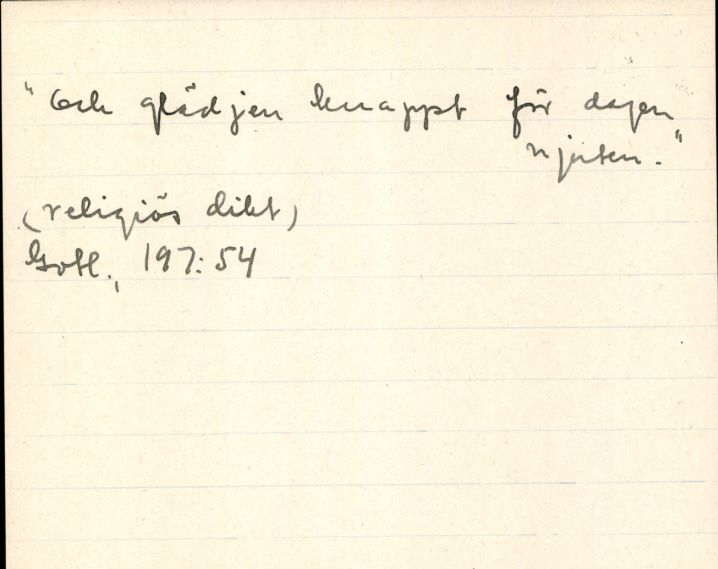 "Och glädjen knappt för dagen
njuten."
(religiös dikt)
Gotl., 197:54